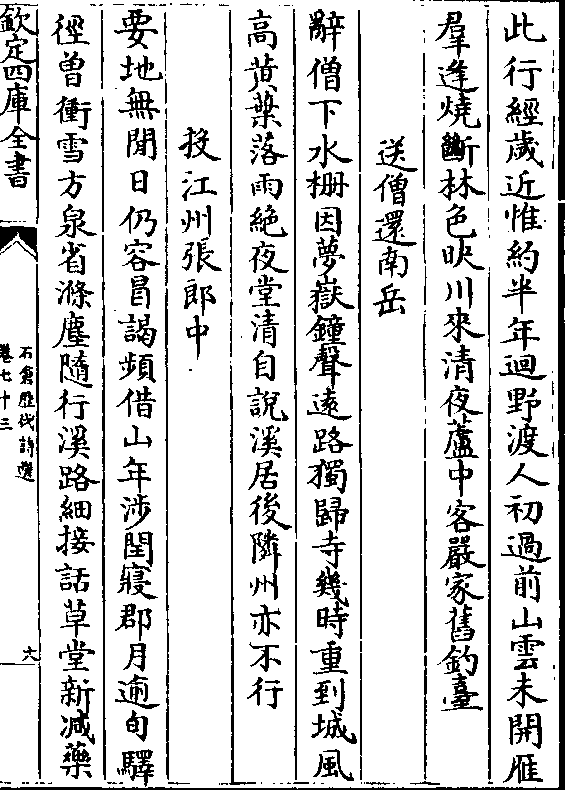 此行經歲近惟約半年迴野渡人初過前山雲未開雁
羣逢燒斷林色映川來清夜蘆中客嚴家舊釣臺
送僧還南岳
辭僧下水栅因夢嶽鐘聲遠路獨歸寺幾時重到城風
高黄葉落雨絶夜堂清自說溪居後隣州亦不行
投江州張郎中
要地無閒日仍容冒謁頻借山年涉閏寢郡月逾旬驛
徑曽衝雪方泉省滌塵隨行溪路細接話草堂新减藥
欽定四庫全書
石倉歴代詩選
卷七十三
六